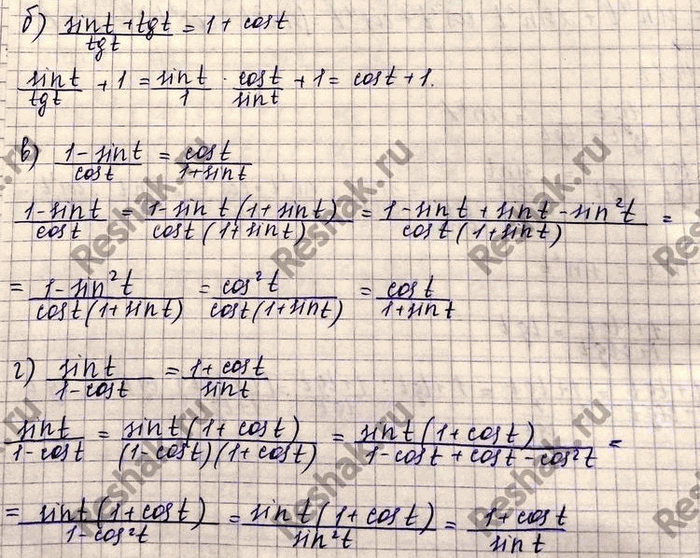 б) (sint + tgt)/tgt = 1 + cost
sint/tgt + 1 = sint/1 · cost/sint + 1 = cost + 1.
в) (1 - sint)/cost = cost/(1 + sint)
(1 - sint)/cost = 1 - sin t (1 + sint)/cost (1 + sint) = (1 - sint + sint - sin²t)/cost (1 + sint) =
= (1 - sin²t)/cost (1 + sint) = cos²t/cost (1 + sint) = cost/(1 + sint)
г) sint/(1 - cost) = (1 + cost)/sint
sint/(1 - cost) = sint (1 + cost)/(1 - cost)(1 + cost) = sint (1 + cost)/(1 - cost + cost - cos²t) =
= sint (1 + cost)/(1 - cos²t) = sint (1 + cost)/sin²t = (1 + cost)/sint
Reshak.ru
Reshak.ru
Reshak.ru
Reshak.ru
Reshak.ru
Reshak.ru